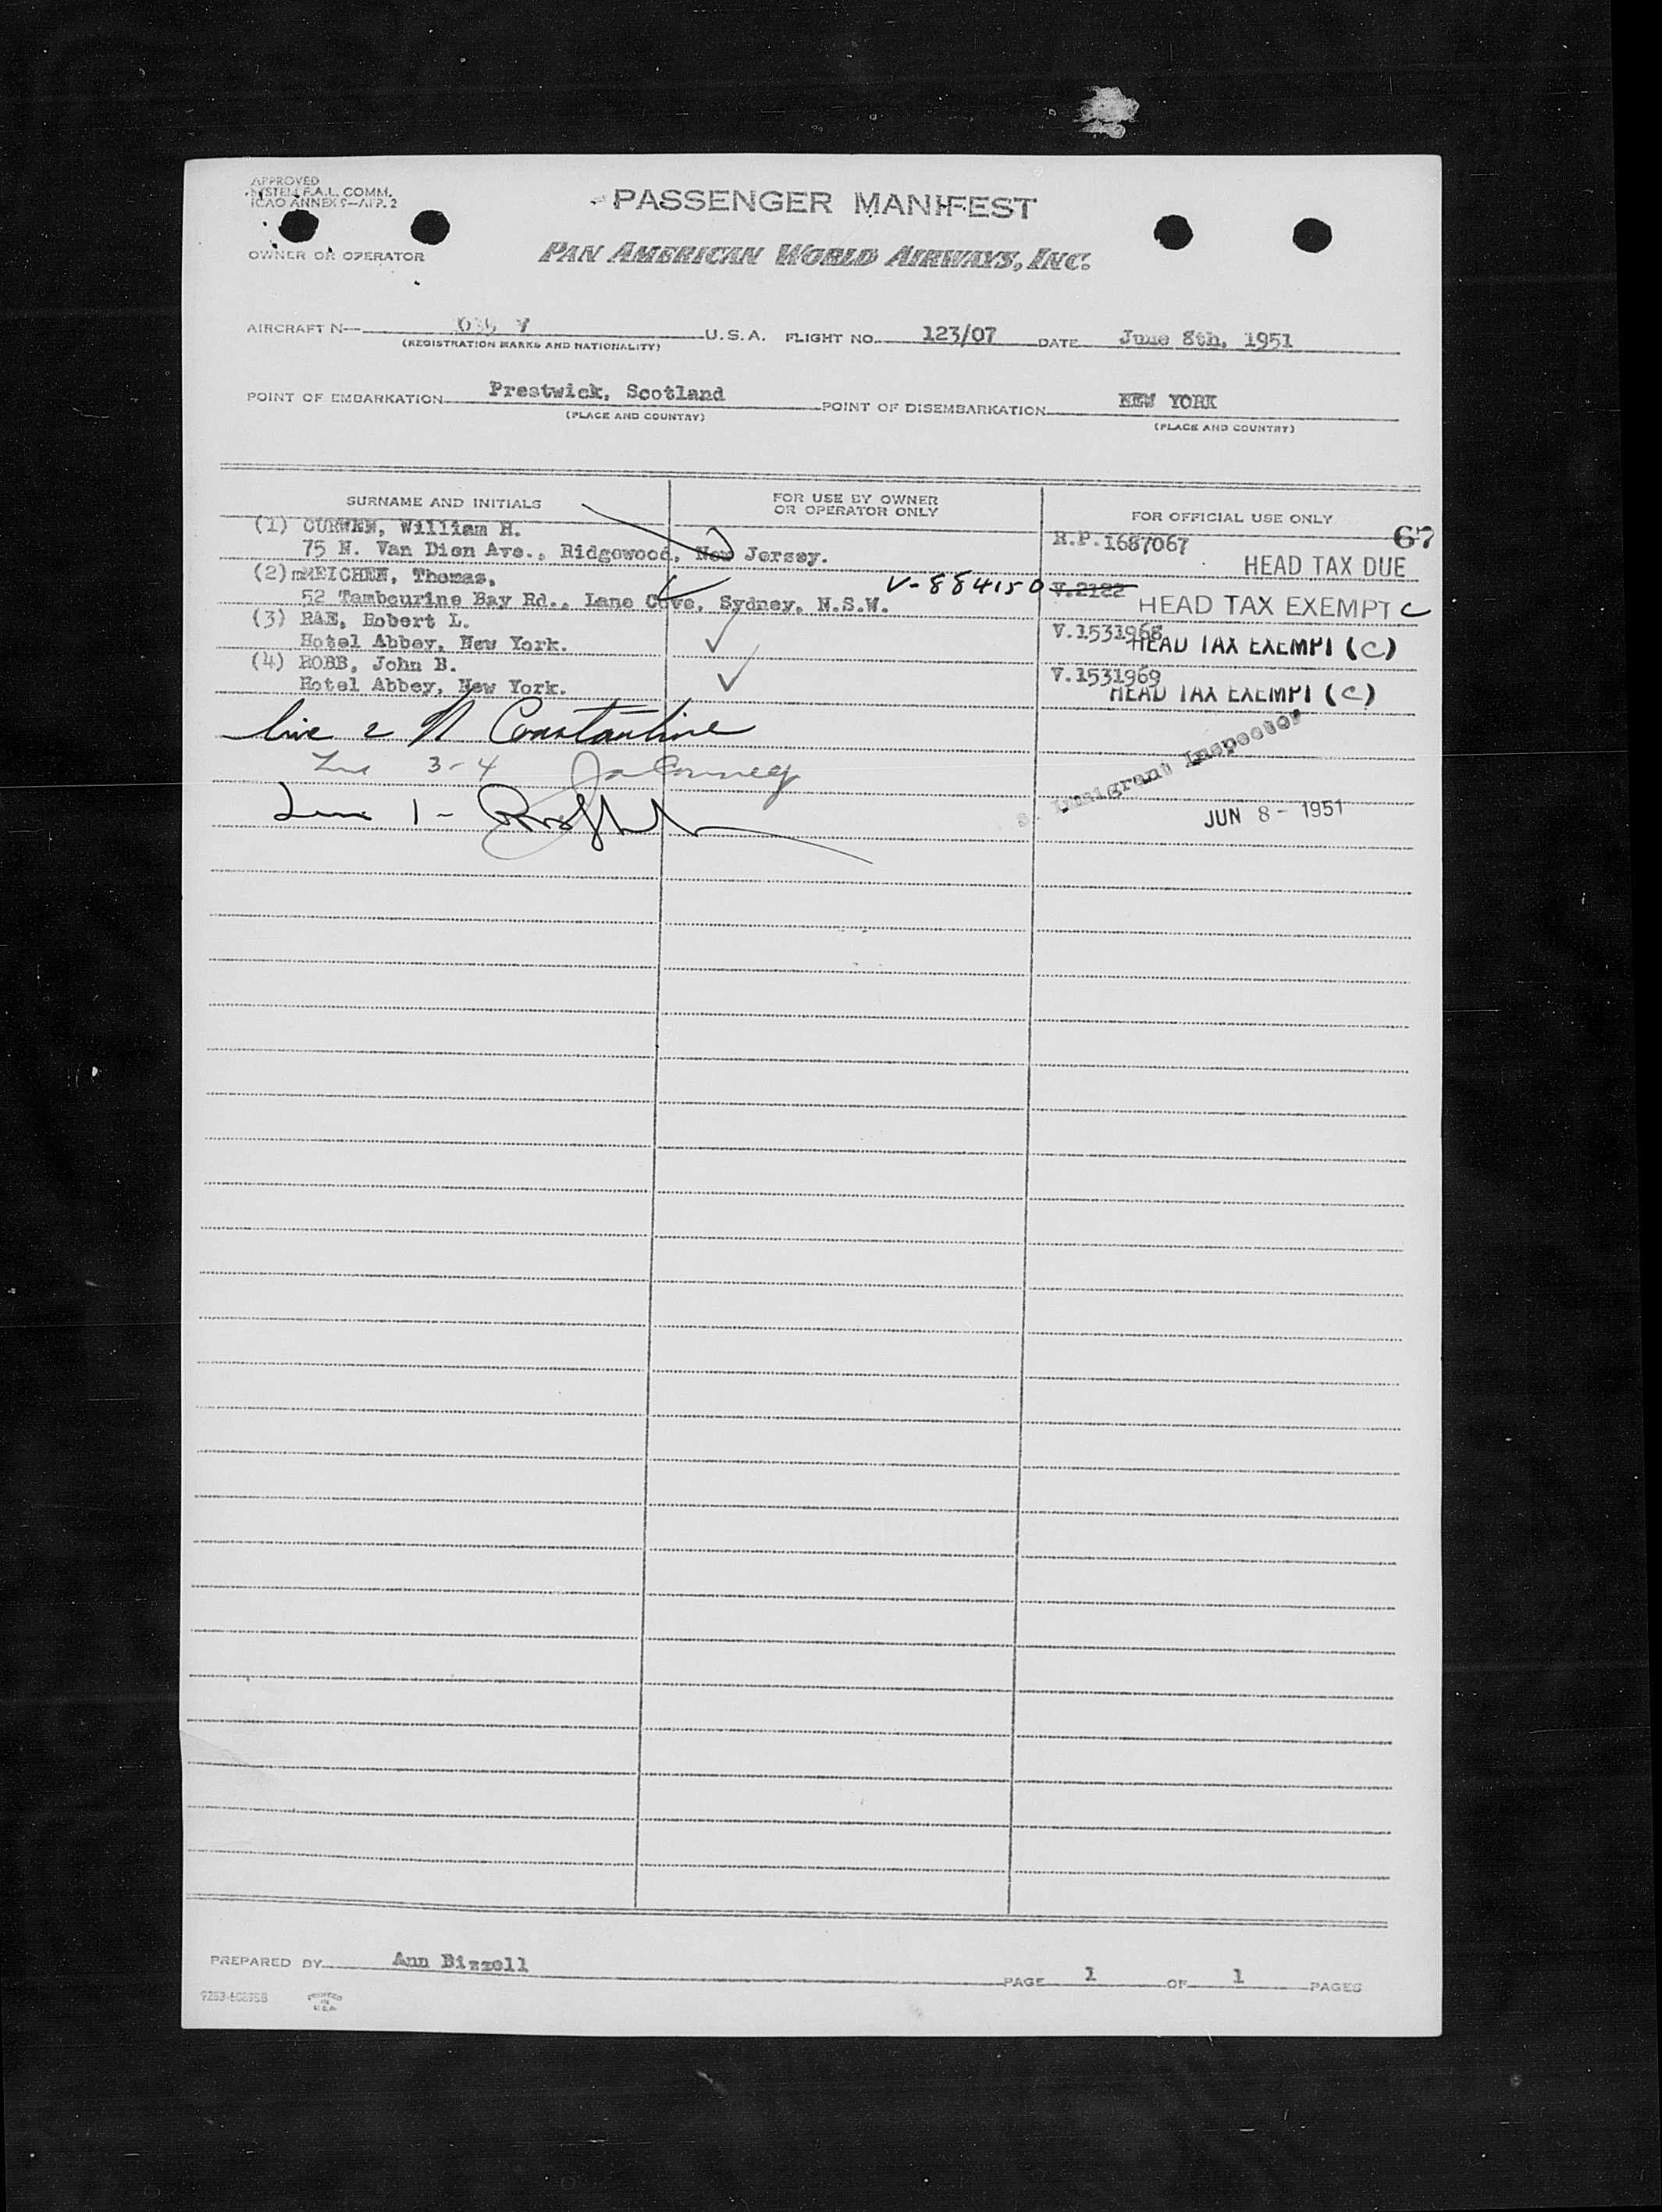 APPROVED
SYSTEM F.A.L. COMM.
ICAO ANNEX 9—APP. 2
PASSENGER MANIFEST
OWNER OR OPERATOR PAN AMERICAN WORLD AIRWAYS, INC.
AIRCRAFT N— U.S.A. FLIGHT NO. 123/07 DATE June 8th, 1951
(REGISTRATION MARKS AND NATIONALITY)
POINT OF EMBARKATION Prestwick, Scotland POINT OF DISEMBARKATION NEW YORK
(PLACE AND COUNTRY) (PLACE AND COUNTRY)
SURNAME AND INITIALS FOR USE BY OWNER OR OPERATOR ONLY FOR OFFICIAL USE ONLY
67
(1) CURWEN, William H. R.P.1687067
75 N. Van Dien Ave., Ridgewood, New Jersey. HEAD TAX DUE
(2) mMEICHEN, Thomas, V-884150 V.2122
52 Tambourine Bay Rd., Lane Cove, Sydney, N.S.W. HEAD TAX EXEMPT C
(3) RAE, Robert L. V.1531968
Hotel Abbey, New York. HEAD TAX EXEMPT (C)
(4) ROBB, John B. V.1531969
Hotel Abbey, New York. HEAD TAX EXEMPT (C)
line 2 N Constantine
Immigrant Inspector
Line 3-4
Line 1 -
JUN 8 - 1951
PREPARED BY Ann Bizzell PAGE 1 OF 1 PAGES
PRINTED
IN
U.S.A.